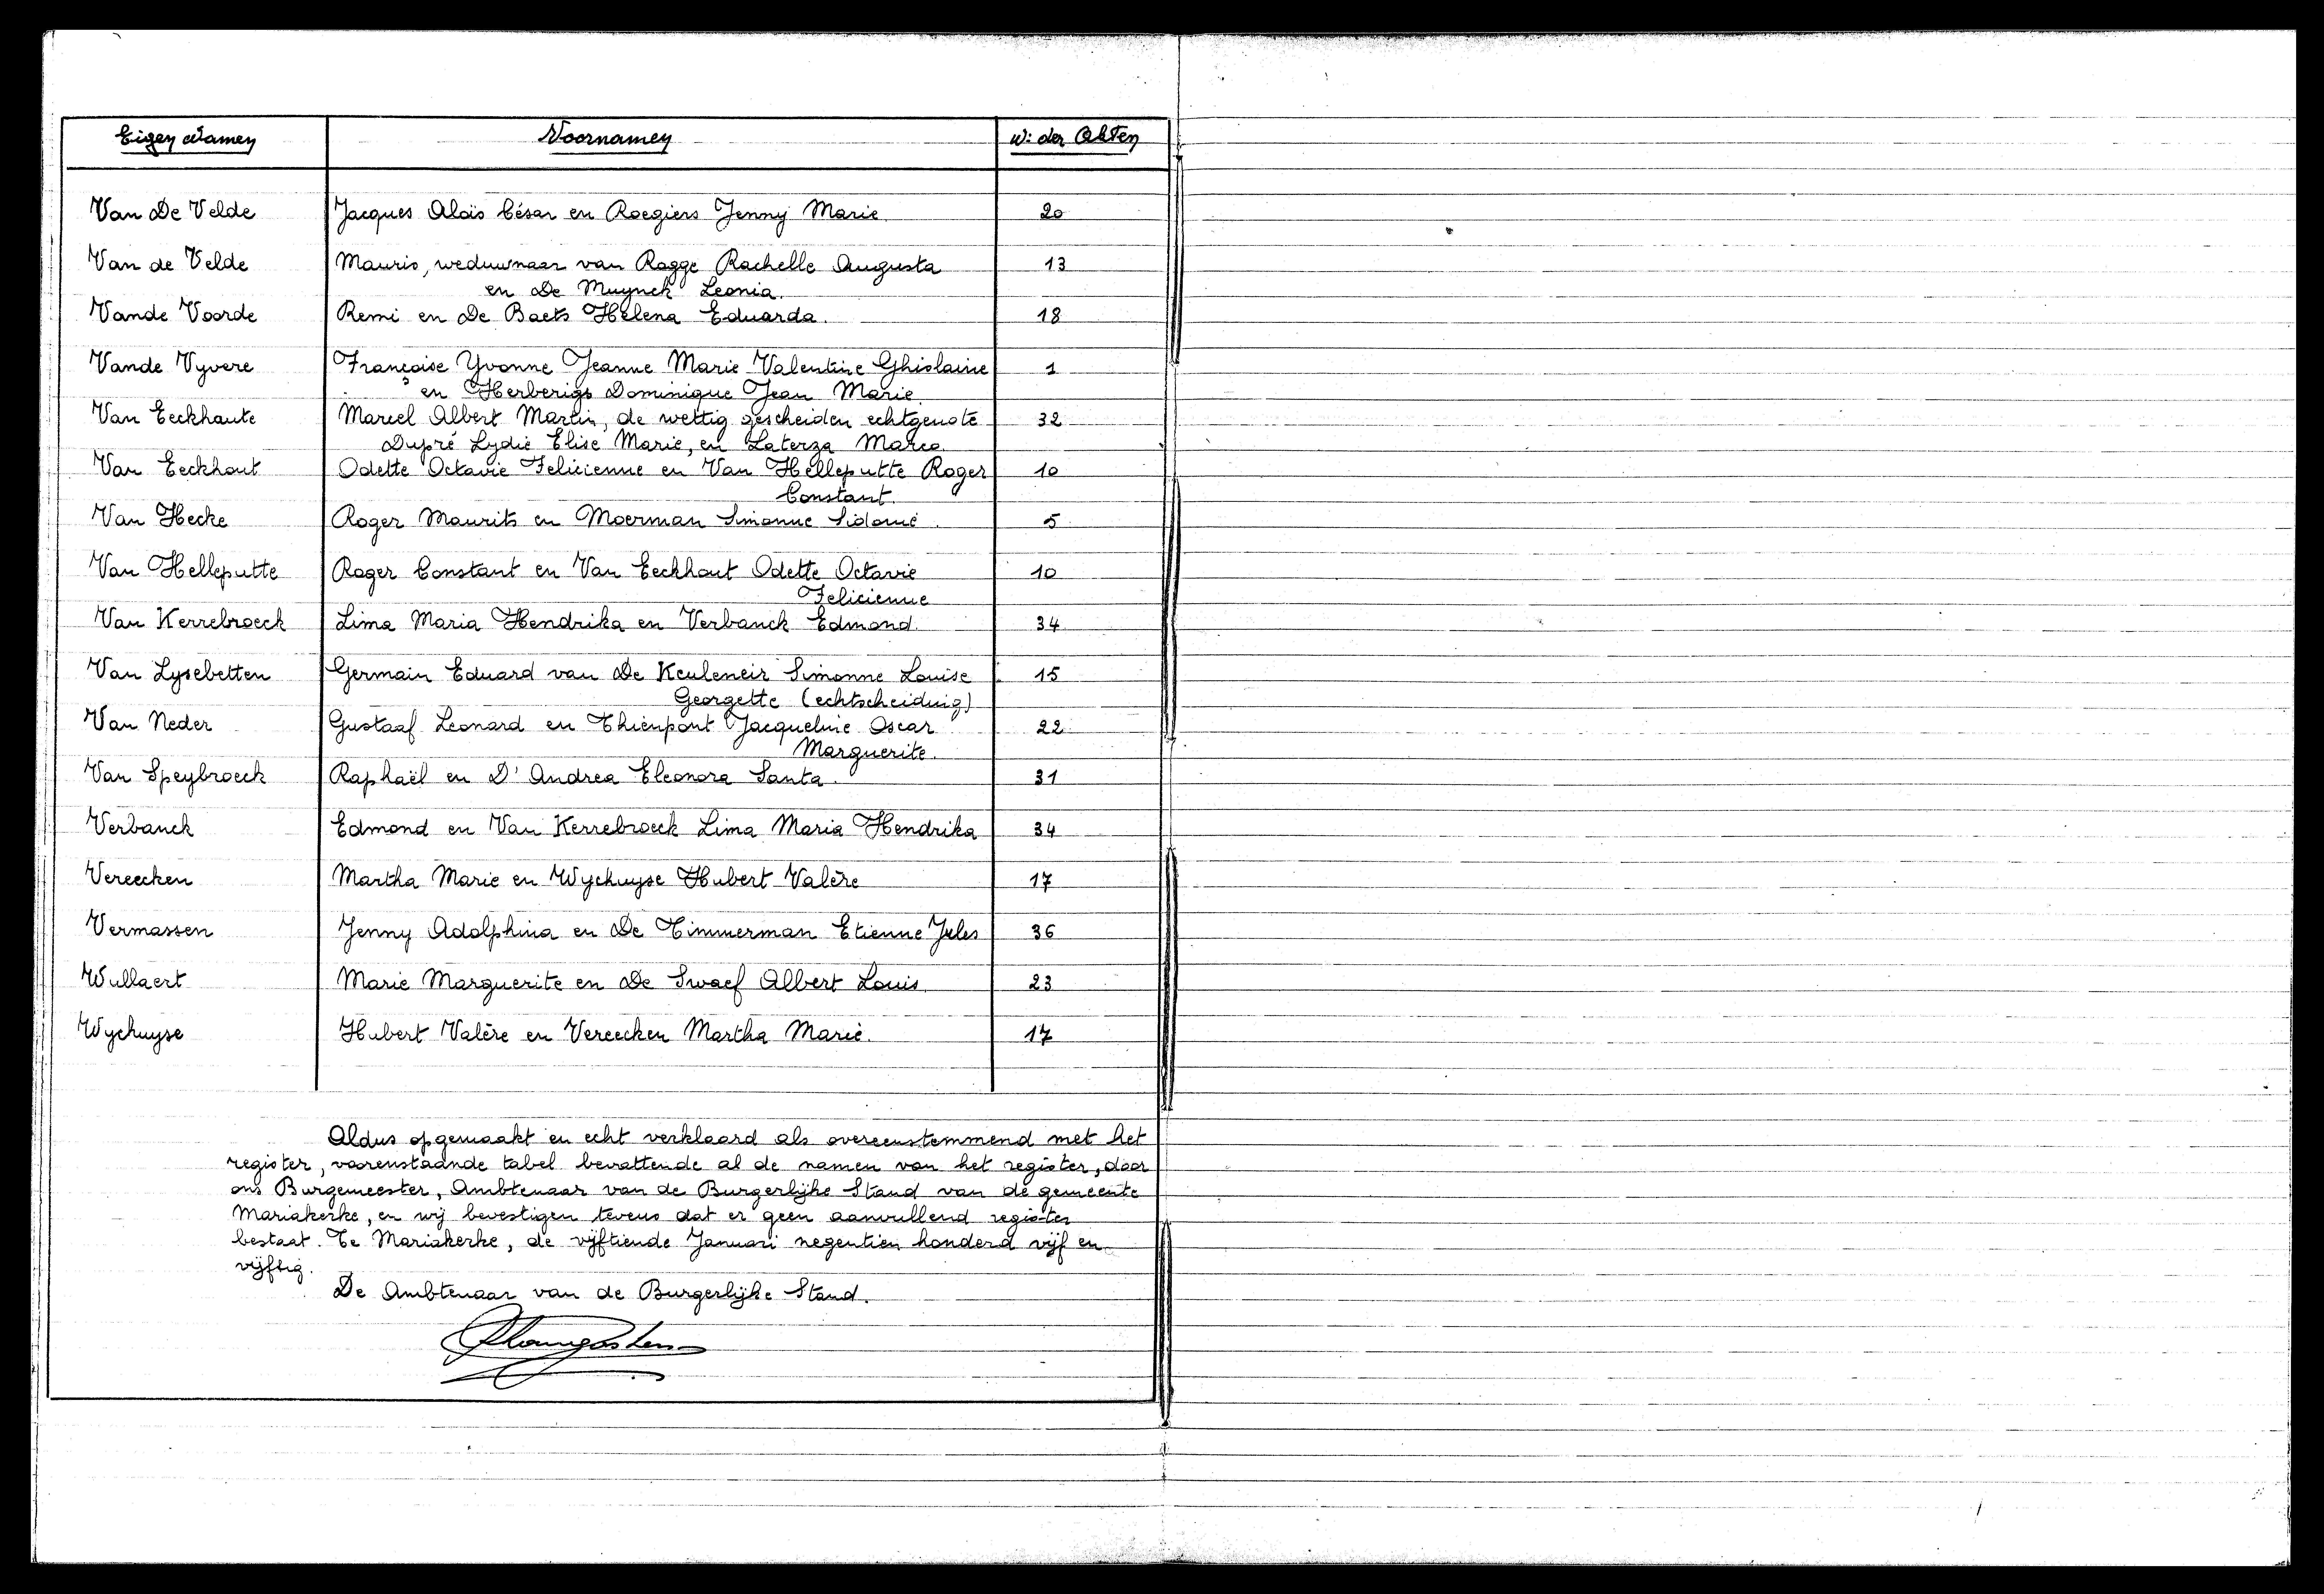 Eigen Namen Voornamen N: der Akten
Van De Velde Jacques Aloïs César en Roegiers Jenny Marie 20
Van de Velde Mauris, weduwnaar van Ragge Rachelle Augusta 13
en De Muynck Leonia.
Vande Voorde Remi en De Baets Helena Eduarda. 18
Vande Vyvere Françoise Yvonne Jeanne Marie Valentine Ghislaine 1
en Herberigs Dominique Jean Marie.
Van Eeckhaute Marcel Albert Martin, de wettig gescheiden echtgenote 32
Dupré Lydie Elise Marie, en Laterza Marca
Van Eeckhout Odette Octavie Felicienne en Van Helleputte Roger 10
Constant.
Van Hecke Roger Maurits en Moerman Simonne Sidonie. 5
Van Helleputte Roger Constant en Van Eeckhout Odette Octavie 10
Felicienne
Van Kerrebroeck Lima Maria Hendrika en Verbanck Edmond. 34
Van Lysebetten Germain Eduard van De Keuleneir Simonne Louise 15
Georgette (echtscheiding)
Van Neder Gustaaf Leonard en Thienpont Jacqueline Oscar 22
Marguerite.
Van Speybroeck Raphaël en D'Andrea Eleonora Santa. 31
Verbanck Edmond en Van Kerrebroeck Lima Maria Hendrika 34
Vereecken Martha Marie en Wychuyse Hubert Valère 17
Vermassen Jenny Adolphina en De Timmerman Etienne Jules 36
Wullaert Marie Marguerite en De Swaef Albert Louis 23
Wychuyse Hubert Valère en Vereecken Martha Marie. 17
Aldus opgemaakt en echt verklaard als overeenstemmend met het
register, voorenstaande tabel bevattende al de namen van het register, door
ons Burgemeester, Ambtenaar van de Burgerlijke Stand van de gemeente
Mariakerke, en wij bevestigen tevens dat er geen aanvullend register
bestaat. Te Mariakerke, de vijftiende Januari negentien honderd vijf en
vijftig.
De Ambtenaar van de Burgerlijke Stand.